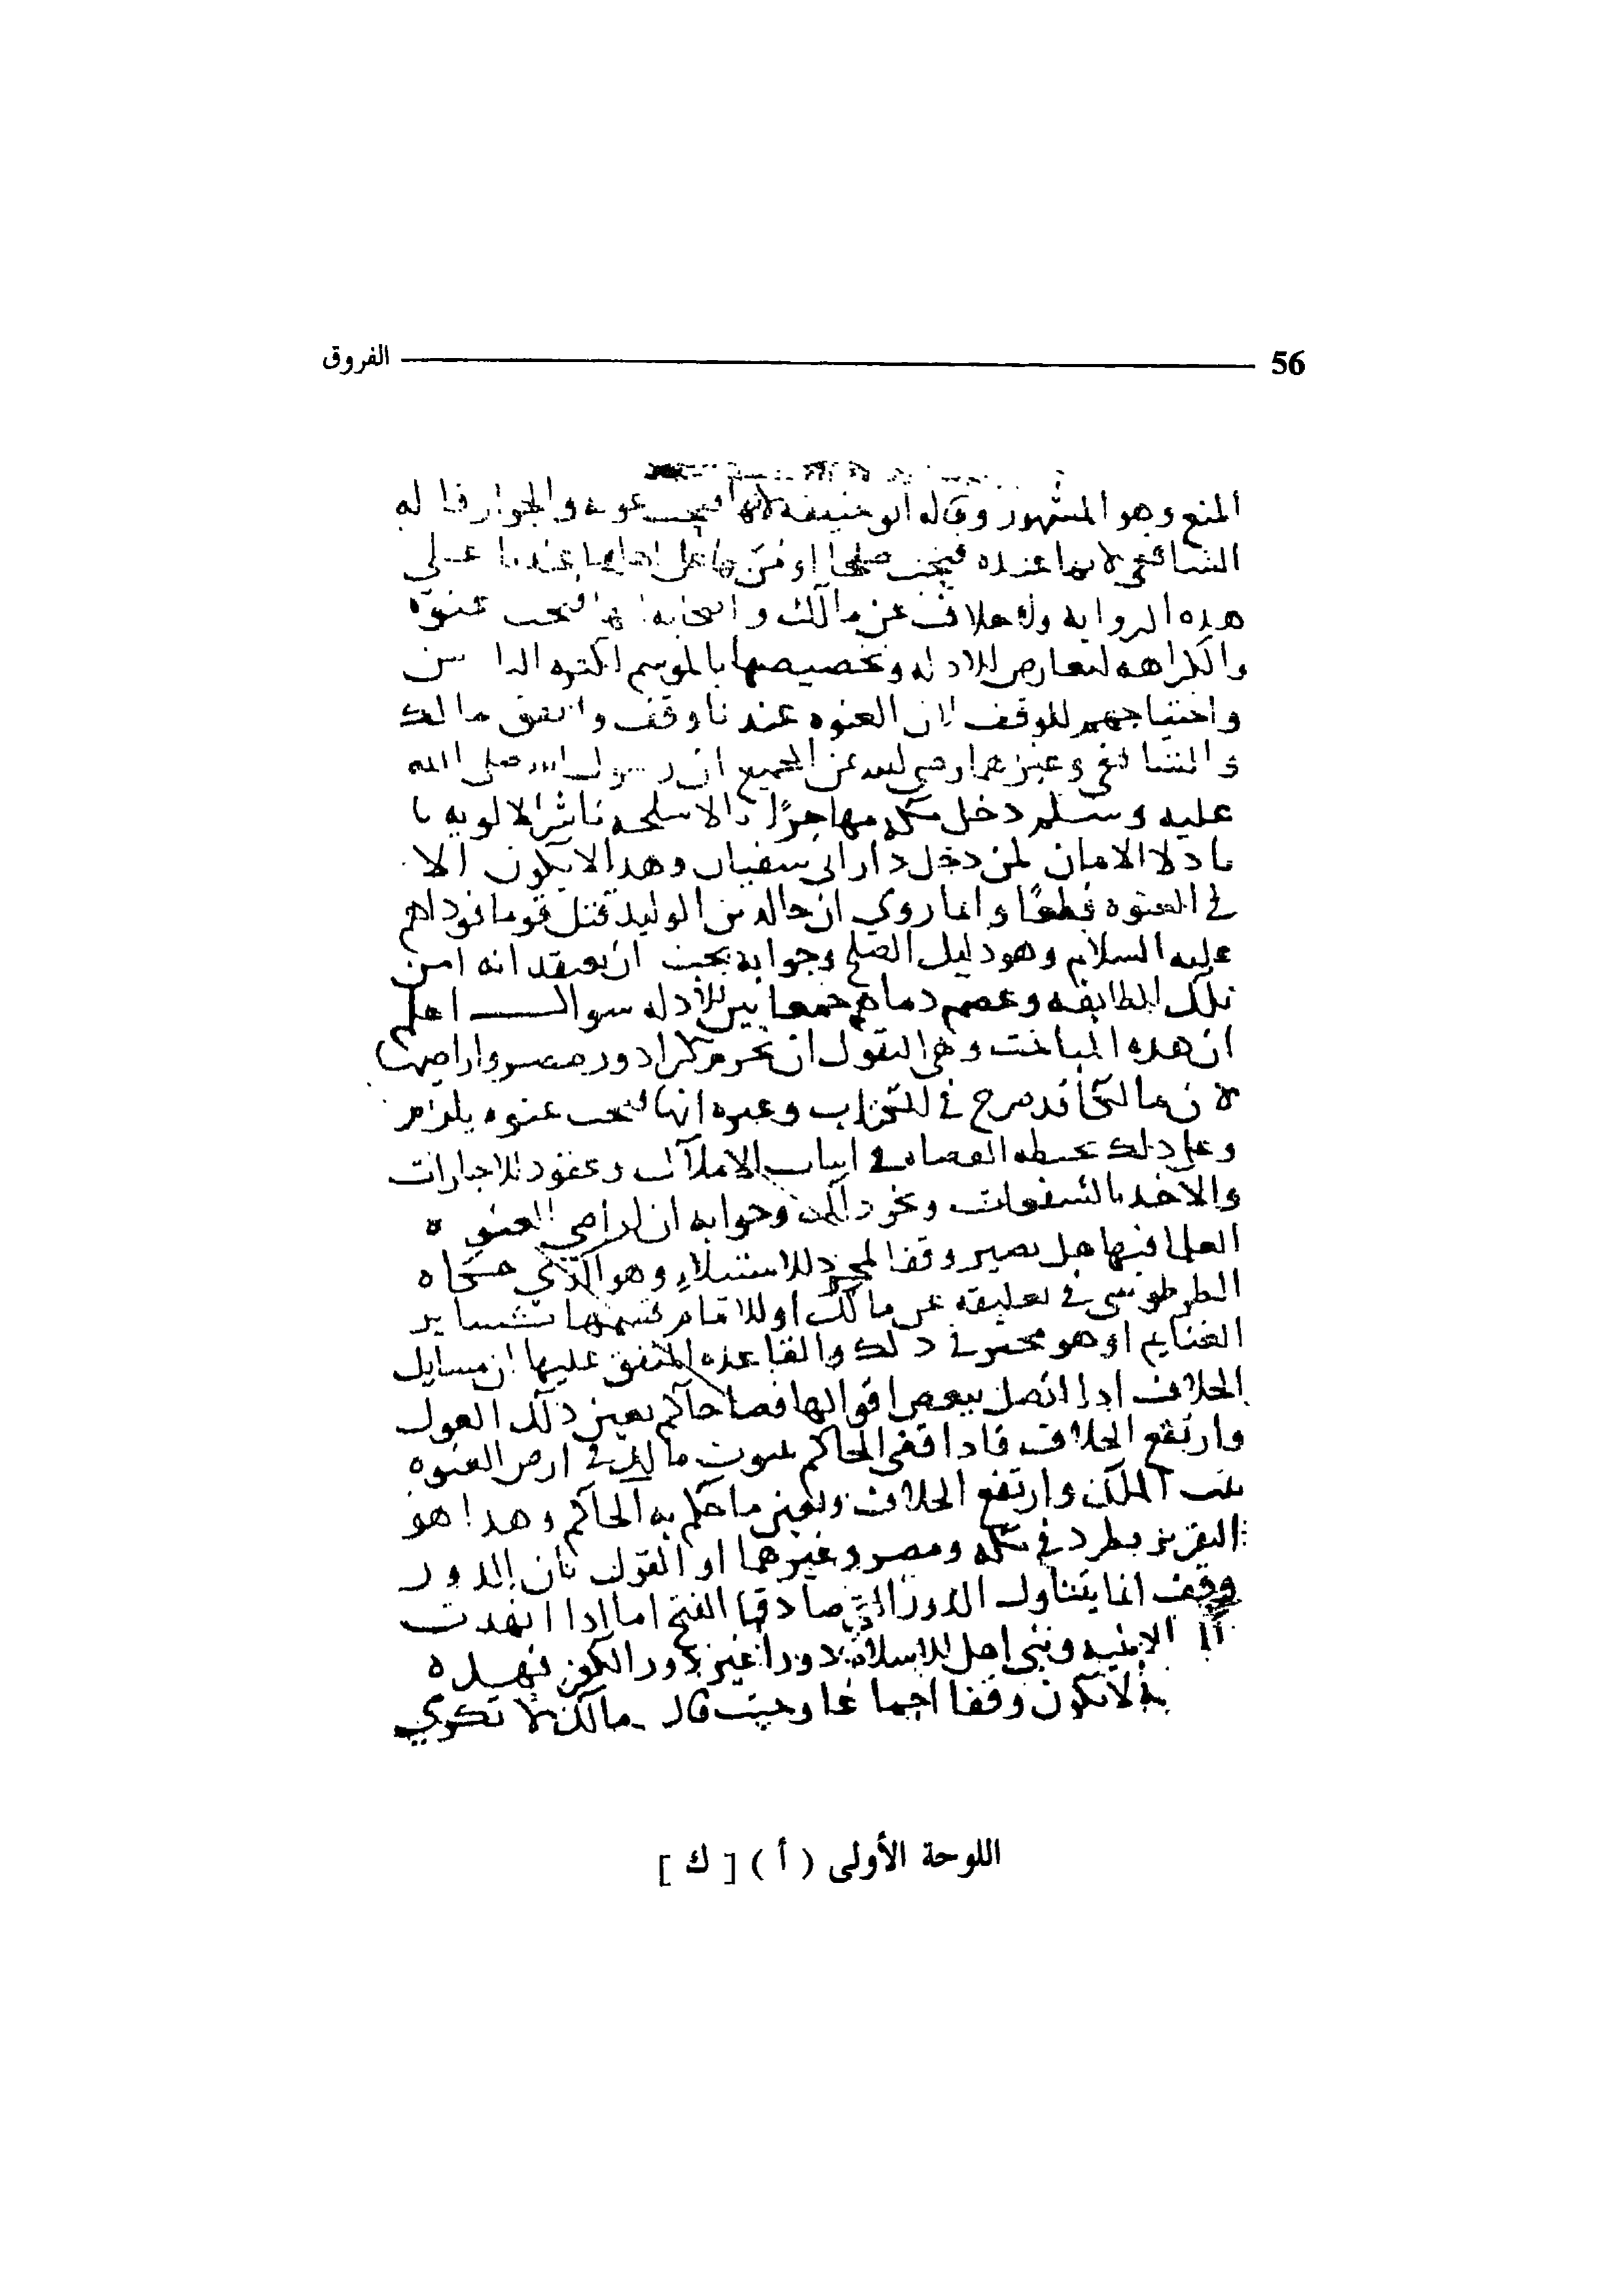 56 الفروق
المنع وهو المشهور وقاله ابو حنيفه لانها فتحت عنوه والجواز قاله
الشافعي لانها عنده فتحت صلحا او من بها على اهلها عندنا على
هده الروايه ولا خلاف عن مالك واصحابه انها فتحت عنوة
والكراهه لتعارض الادله وتخصيصها بالموسم لكثره الناس
واحتياجهم للوقف لان العنوه عندنا وقف واتفق مالك
والشافعي وغيرهما رضي الله عن الجميع ان رسول الله صلى الله
عليه وسلم دخل مكه مهاجرًا بالاسلحه ناشرًا لالويه
بادلا الامان لمن دخل دار ابي سفيان وهدا لا يكون الا
في العنوه قطعًا وانما روي ان خالد بن الوليد قتل قوما فوداهم
عليه السلام وهو دليل الصلح وجوابه يجب ان يعتقد انه امن
تلك الطايفه وعصم دماهم جمعا بين الادله سوال اعلم
ان هده المباحث وهي القول ان تحرم كرا دور مصر واراضيها
لان مالكا قد صرح في الكتاب وغيره انها فتحت عنوه يلزم
وعلى دلك تخطئه القضاه في اثبات الاملاك وعقود الاجارات
والاخد بالشفعات ونحو دلك وجوابه ان اراضي العنوه
العلما فيها هل تصير وقفا لمجرد الاستيلاء وهو الذي حكاه
الطرطوشي في تعليقه عن مالك او للامام قسمتها كساير
الغنايم او هو مخير في دلك والقاعده المتفق عليها ان مسايل
الخلاف ادا اتصل ببعض اقوالها قضا حاكم تعين دلك القول
وارتفع الخلاف فادا قضى الحاكم بثبوت ملك في ارض العنوه
ثبت الملك وارتفع الخلاف وتعين ما حكم به الحاكم وهدا هو
التقرير يطرد في مكه ومصر وغيرهما او القول بان الدور
وقف انما يتناول الدور التي صادفها الفتح اما ادا انهدت
الابنيه وبنى اهل الاسلام دورا غير دور الكفر فهده
لا تكون وقفا اجماعا وحيث قال مالك لا تكرى
اللوحة الأولى ( أ ) [ ك ]